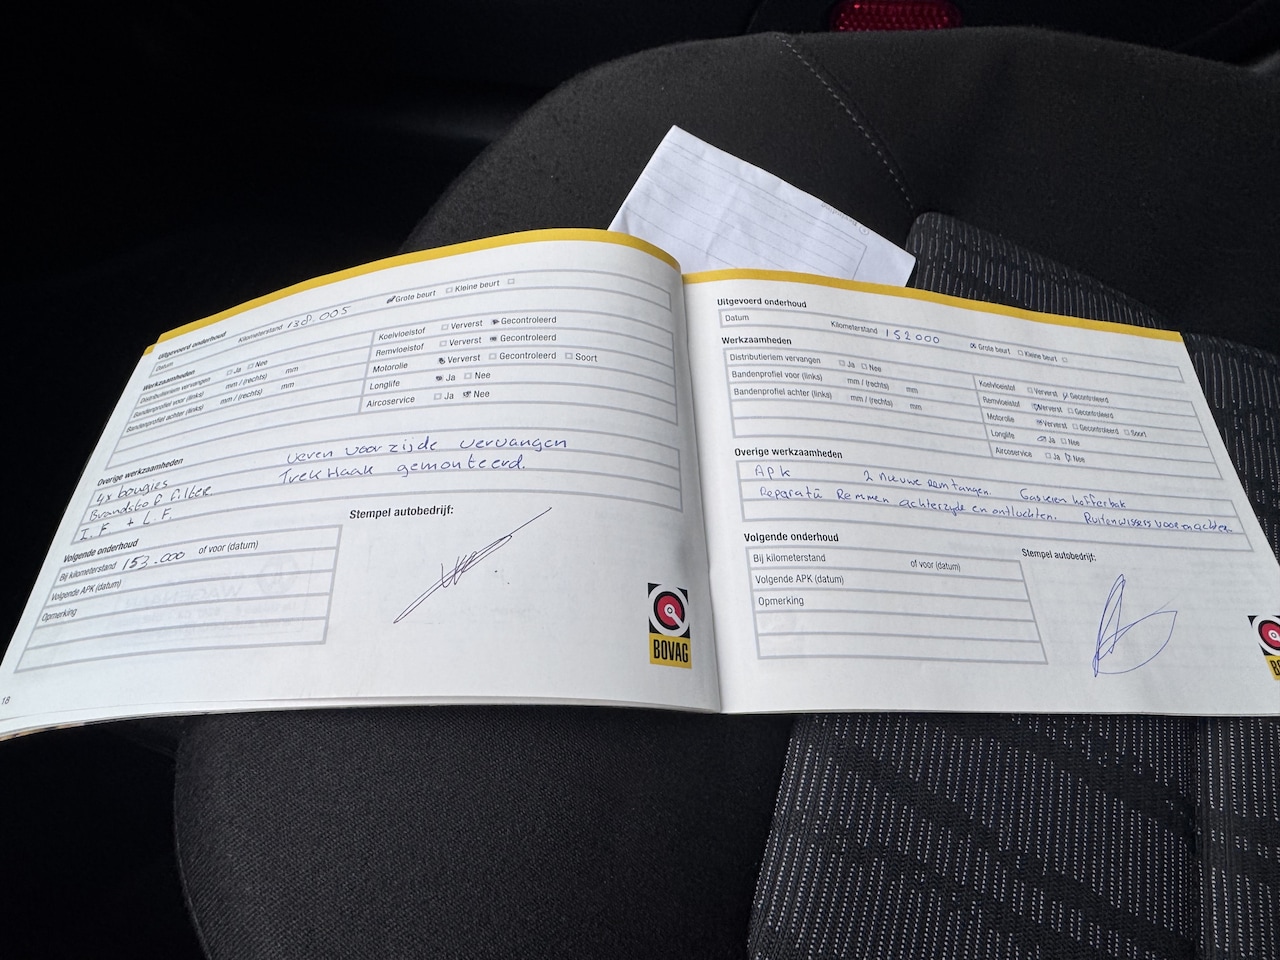 Uitgevoerd onderhoud
Datum Kilometerstand 138.005 Grote beurt Kleine beurt
Werkzaamheden
Distributieriem vervangen Ja Nee
Bandenprofiel voor (links) mm / (rechts) mm
Bandenprofiel achter (links) mm / (rechts) mm
Koelvloeistof Ververst Gecontroleerd
Remvloeistof Ververst Gecontroleerd
Motorolie Ververst Gecontroleerd Soort
Longlife Ja Nee
Aircoservice Ja Nee
Overige werkzaamheden
4x bougies veren voorzijde vervangen
Brandstof filter Trekhaak gemonteerd.
I.F. + L.F.
Volgende onderhoud
Bij kilometerstand 153.000 of voor (datum)
Volgende APK (datum)
Opmerking
Stempel autobedrijf:
BOVAG
18
Uitgevoerd onderhoud
Datum Kilometerstand 152000 Grote beurt Kleine beurt
Werkzaamheden
Distributieriem vervangen Ja Nee
Bandenprofiel voor (links) mm / (rechts) mm
Bandenprofiel achter (links) mm / (rechts) mm
Koelvloeistof Ververst Gecontroleerd
Remvloeistof Ververst Gecontroleerd
Motorolie Ververst Gecontroleerd Soort
Longlife Ja Nee
Aircoservice Ja Nee
Overige werkzaamheden
Apk 2 nieuwe remtangen. Gasveren kofferbak
Reparatie Remmen achterzyde en ontluchten. Ruitenwissers voor en achter.
Volgende onderhoud
Bij kilometerstand of voor (datum)
Volgende APK (datum)
Opmerking
Stempel autobedrijf: